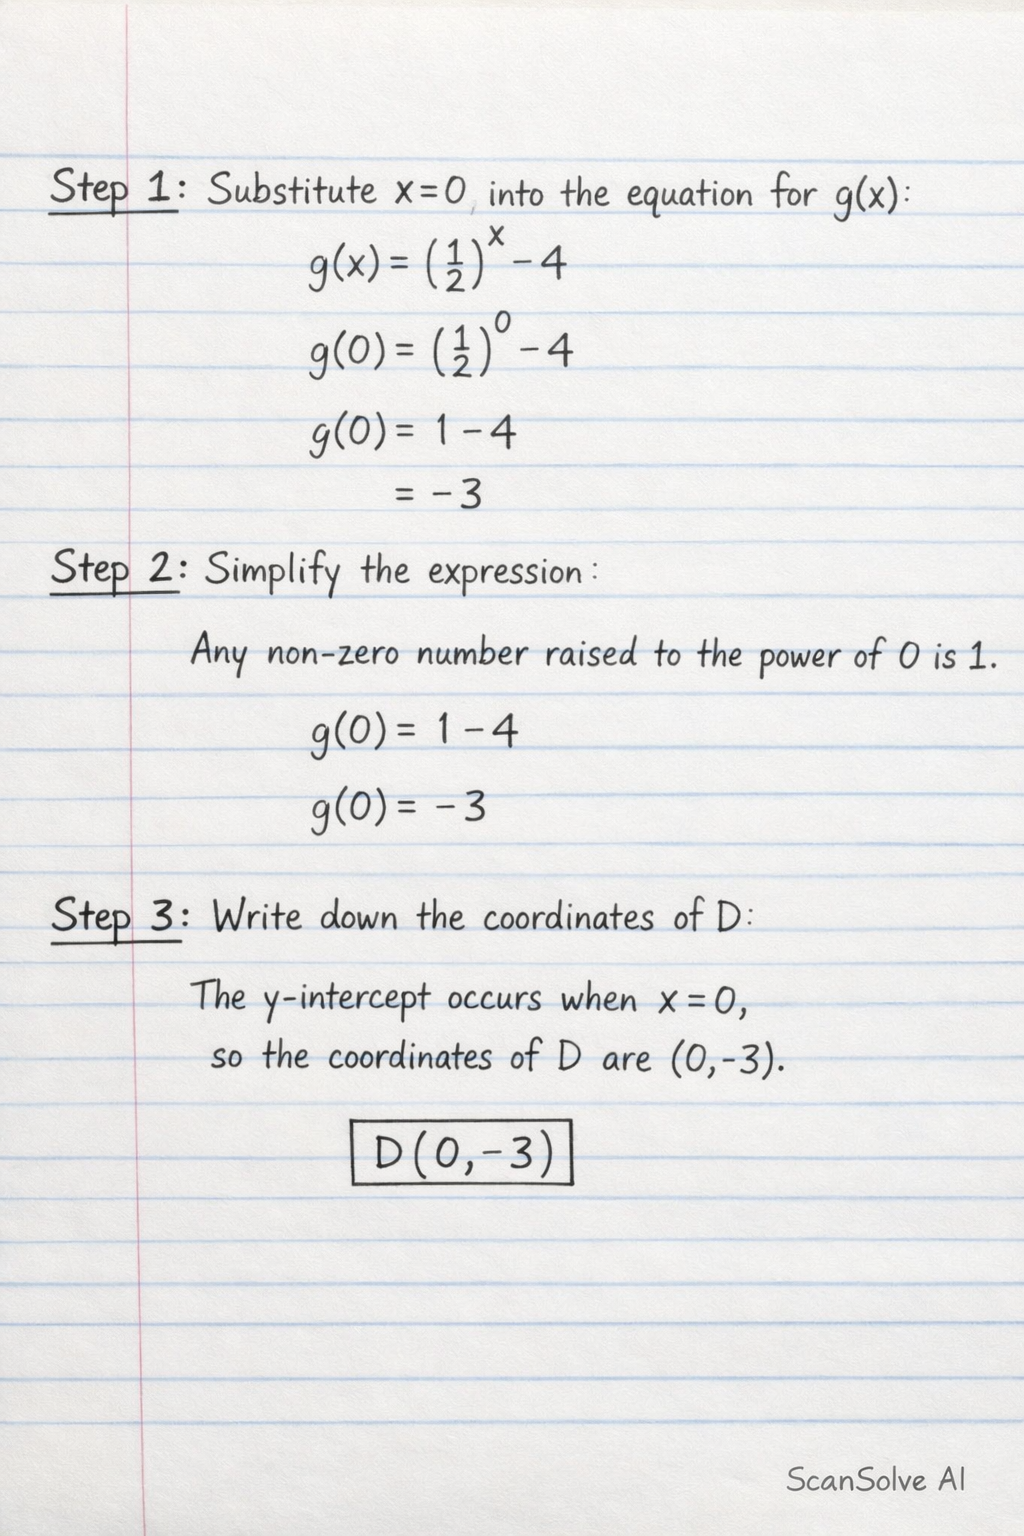 Step 1: Substitute x=0, into the equation for g(x):
g(x) = (1/2)^x − 4
g(0) = (1/2)^0 − 4
g(0) = 1 − 4
= −3
Step 2: Simplify the expression:
Any non-zero number raised to the power of 0 is 1.
g(0) = 1 − 4
g(0) = −3
Step 3: Write down the coordinates of D:
The y-intercept occurs when x = 0,
so the coordinates of D are (0,−3).
D(0,−3)
ScanSolve AI